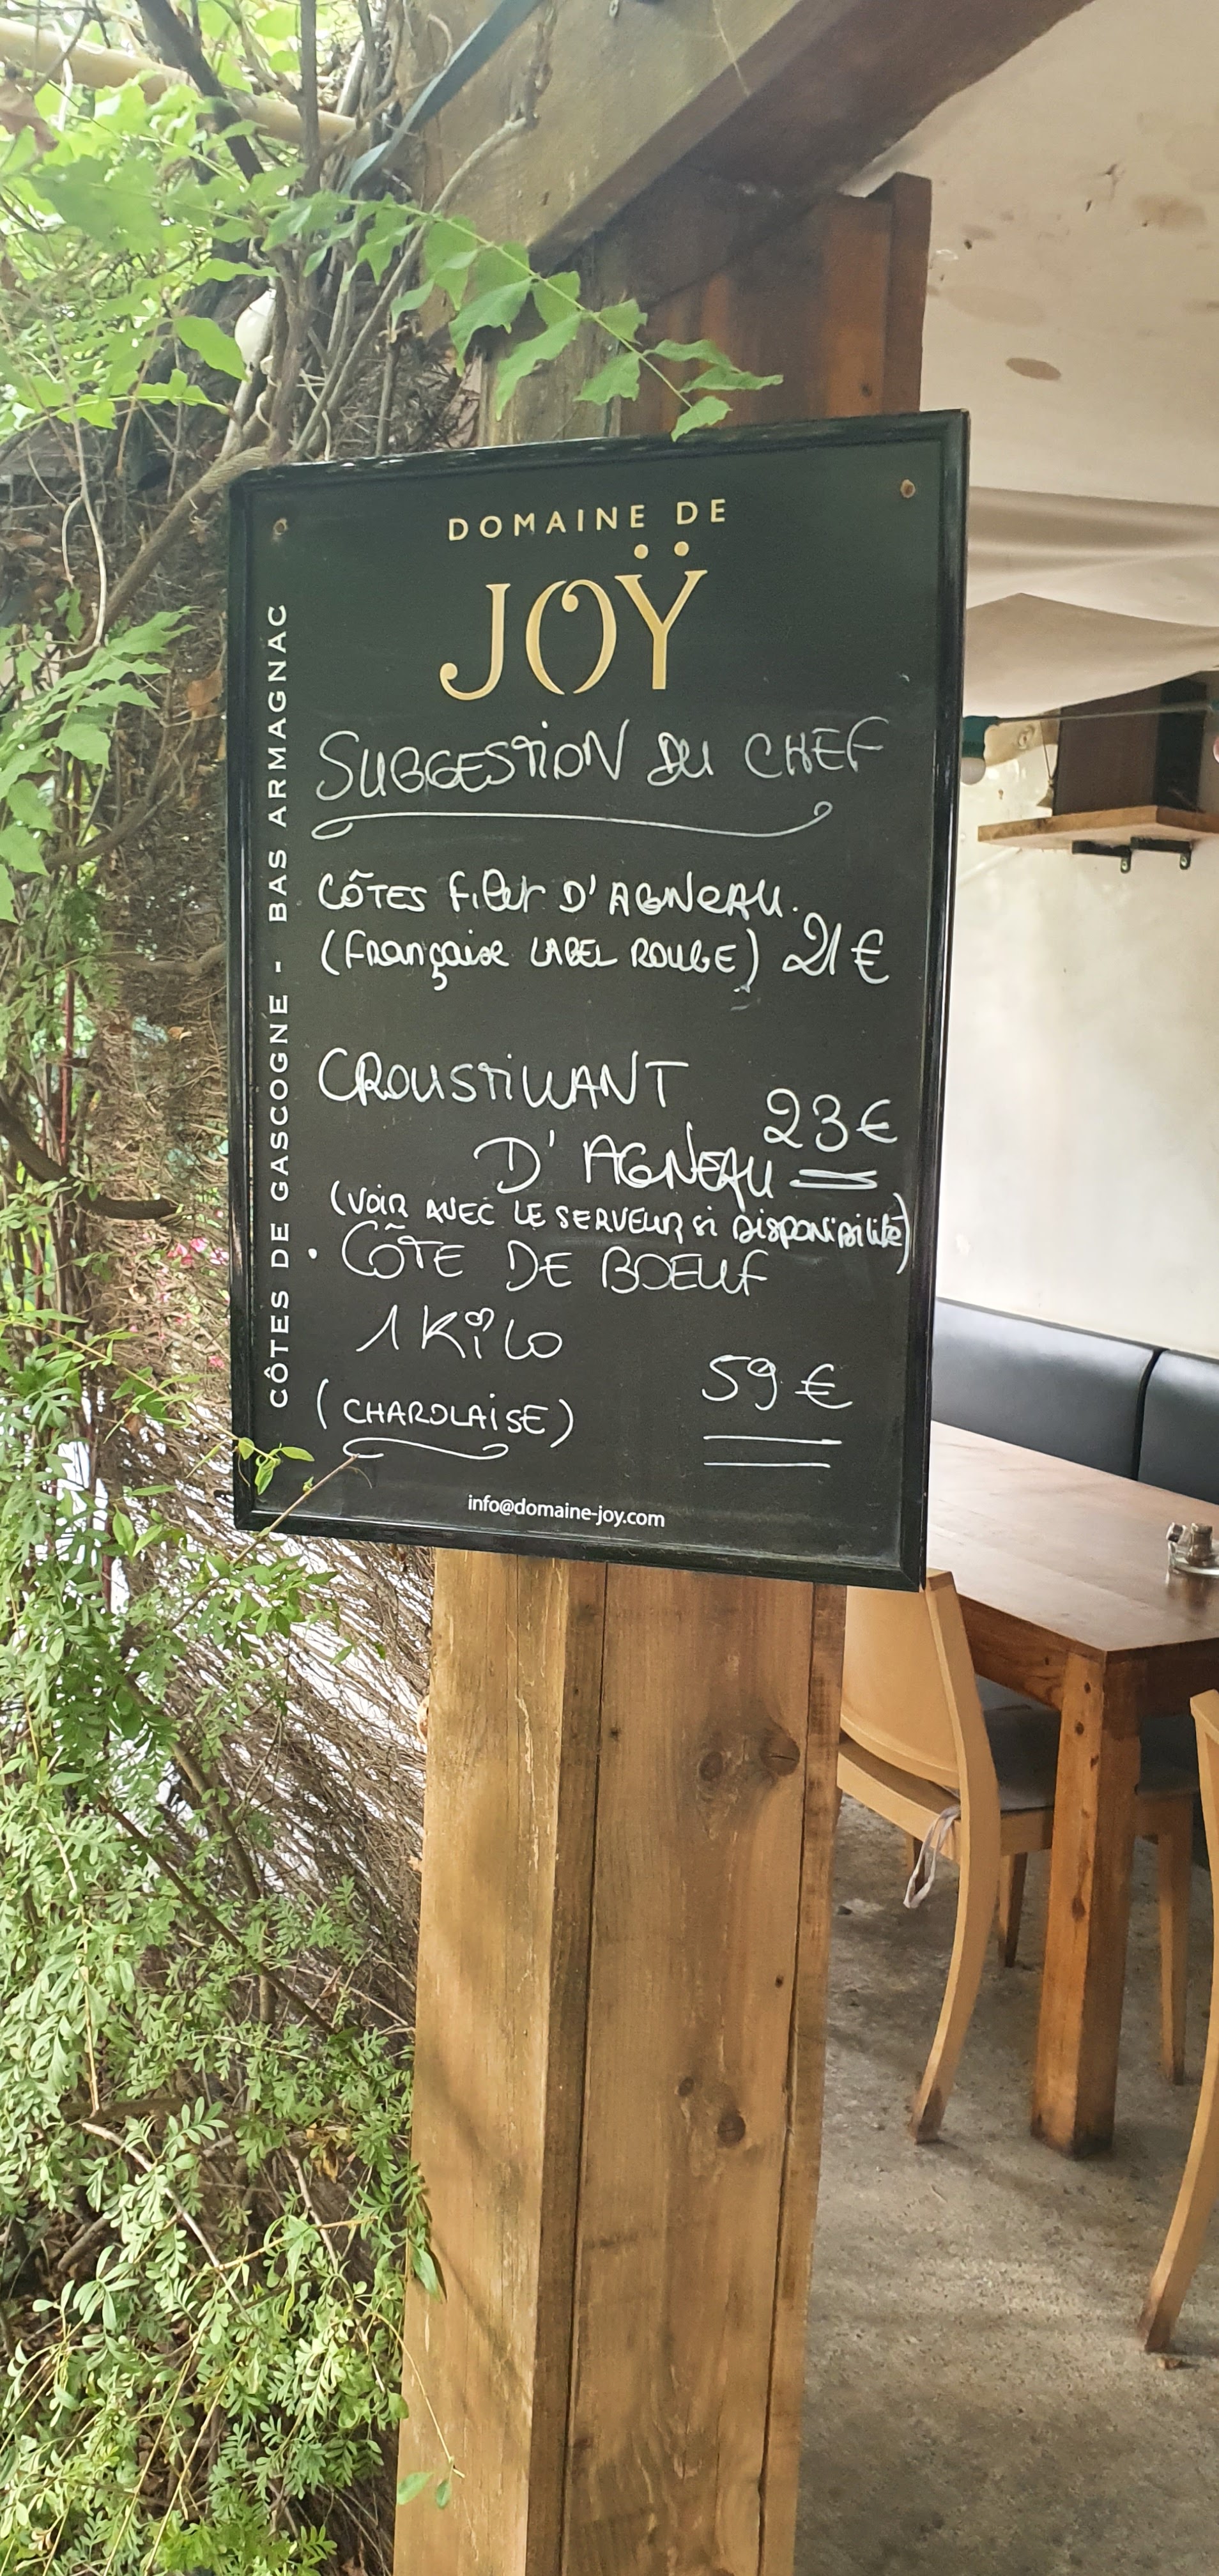 DOMAINE DE
JOŸ
CÔTES DE GASCOGNE - BAS ARMAGNAC
SUGGESTION DU CHEF
CÔTES filet D'AGNEAU.
(Française LABEL ROUGE) 21€
CROUSTILLANT
23€
D'AGNEAU
(VOIR AVEC LE SERVEUR si Disponibilité)
• CÔTE DE BOEUF
1 KiLo
59 €
(CHAROLAISE)
info@domaine-joy.com